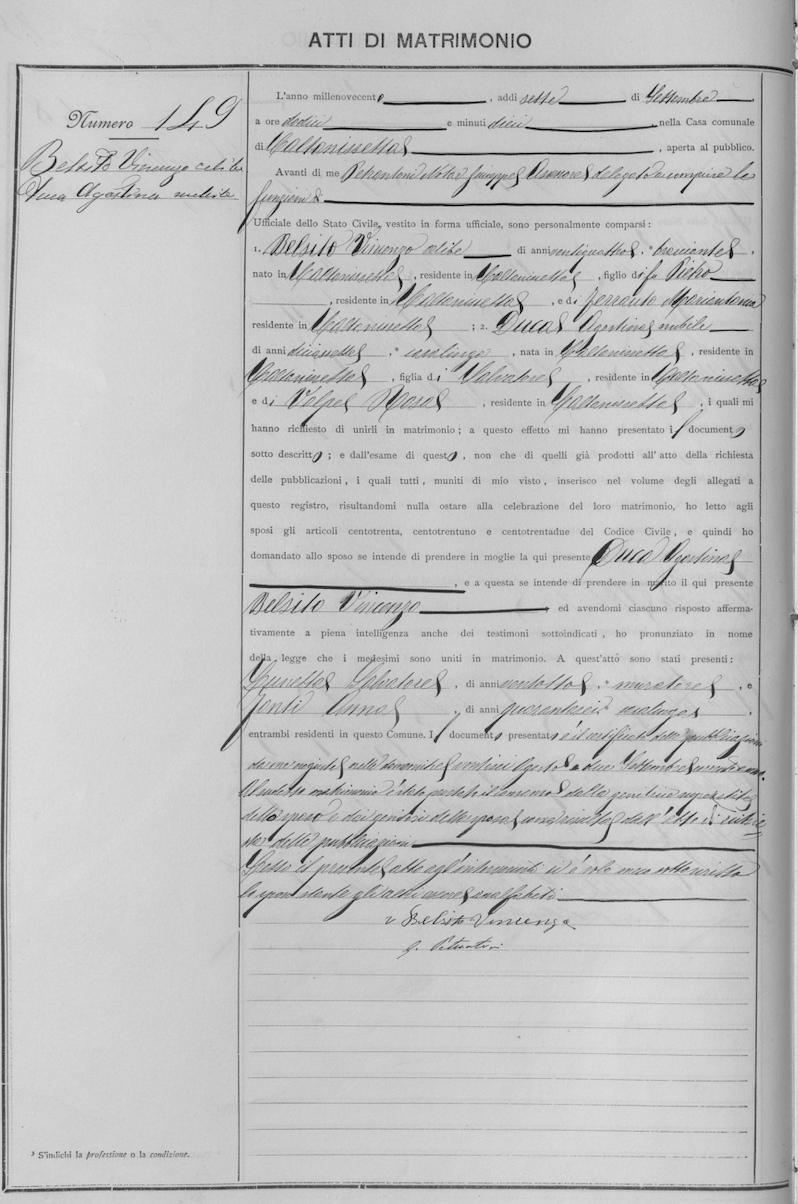 ATTI DI MATRIMONIO
Numero 149
Belsito Vincenzo celibe
Duca Agostina nubile
L'anno millenovecento, addì sette di Settembre,
a ore dodici e minuti dieci, nella Casa comunale
di Caltanissetta, aperta al pubblico.
Avanti di me Notar Giuseppe Assessore delegato a compiere le
funzioni di
Ufficiale dello Stato Civile, vestito in forma ufficiale, sono personalmente comparsi:
1. Belsito Vincenzo celibe di anni ventiquattro, ³ bracciante,
nato in Caltanissetta, residente in Caltanissetta, figlio di fu Pietro
, residente in Caltanissetta, e di Ferrante Marientonia
residente in Caltanissetta; 2. Duca Agostina nubile
di anni diciassette, ³ casalinga, nata in Caltanissetta, residente in
Caltanissetta, figlia di Salvatore, residente in Caltanissetta
e di Volpe Rosa, residente in Caltanissetta, i quali mi
hanno richiesto di unirli in matrimonio; a questo effetto mi hanno presentato il documento
sotto descritto; e dall'esame di questo, non che di quelli già prodotti all'atto della richiesta
delle pubblicazioni, i quali tutti, muniti di mio visto, inserisco nel volume degli allegati a
questo registro, risultandomi nulla ostare alla celebrazione del loro matrimonio, ho letto agli
sposi gli articoli centotrenta, centotrentuno e centotrentadue del Codice Civile, e quindi ho
domandato allo sposo se intende di prendere in moglie la qui presente Duca Agostina
, e a questa se intende di prendere in marito il qui presente
Belsito Vincenzo ed avendomi ciascuno risposto afferma-
tivamente a piena intelligenza anche dei testimoni sottoindicati, ho pronunziato in nome
della legge che i medesimi sono uniti in matrimonio. A quest'atto sono stati presenti:
Salvatore, di anni ventotto, ³ muratore, e
Anna, di anni quarantasei, casalinga,
entrambi residenti in questo Comune. Il documento presentato è il certificato delle pubblicazioni
da me eseguite nelle domeniche ventisei Agosto e due Settembre corrente anno.
Al suddetto matrimonio è stato prestato il consenso dalla genitrice superstite
dello sposo e dai genitori della sposa come risulta dall'atto di richie-
sta delle pubblicazioni
Letto il presente atto agl'intervenuti si è solo meco sottoscritto
lo sposo stante gli altri essere analfabeti
Belsito Vincenzo
³ S'indichi la professione o la condizione.